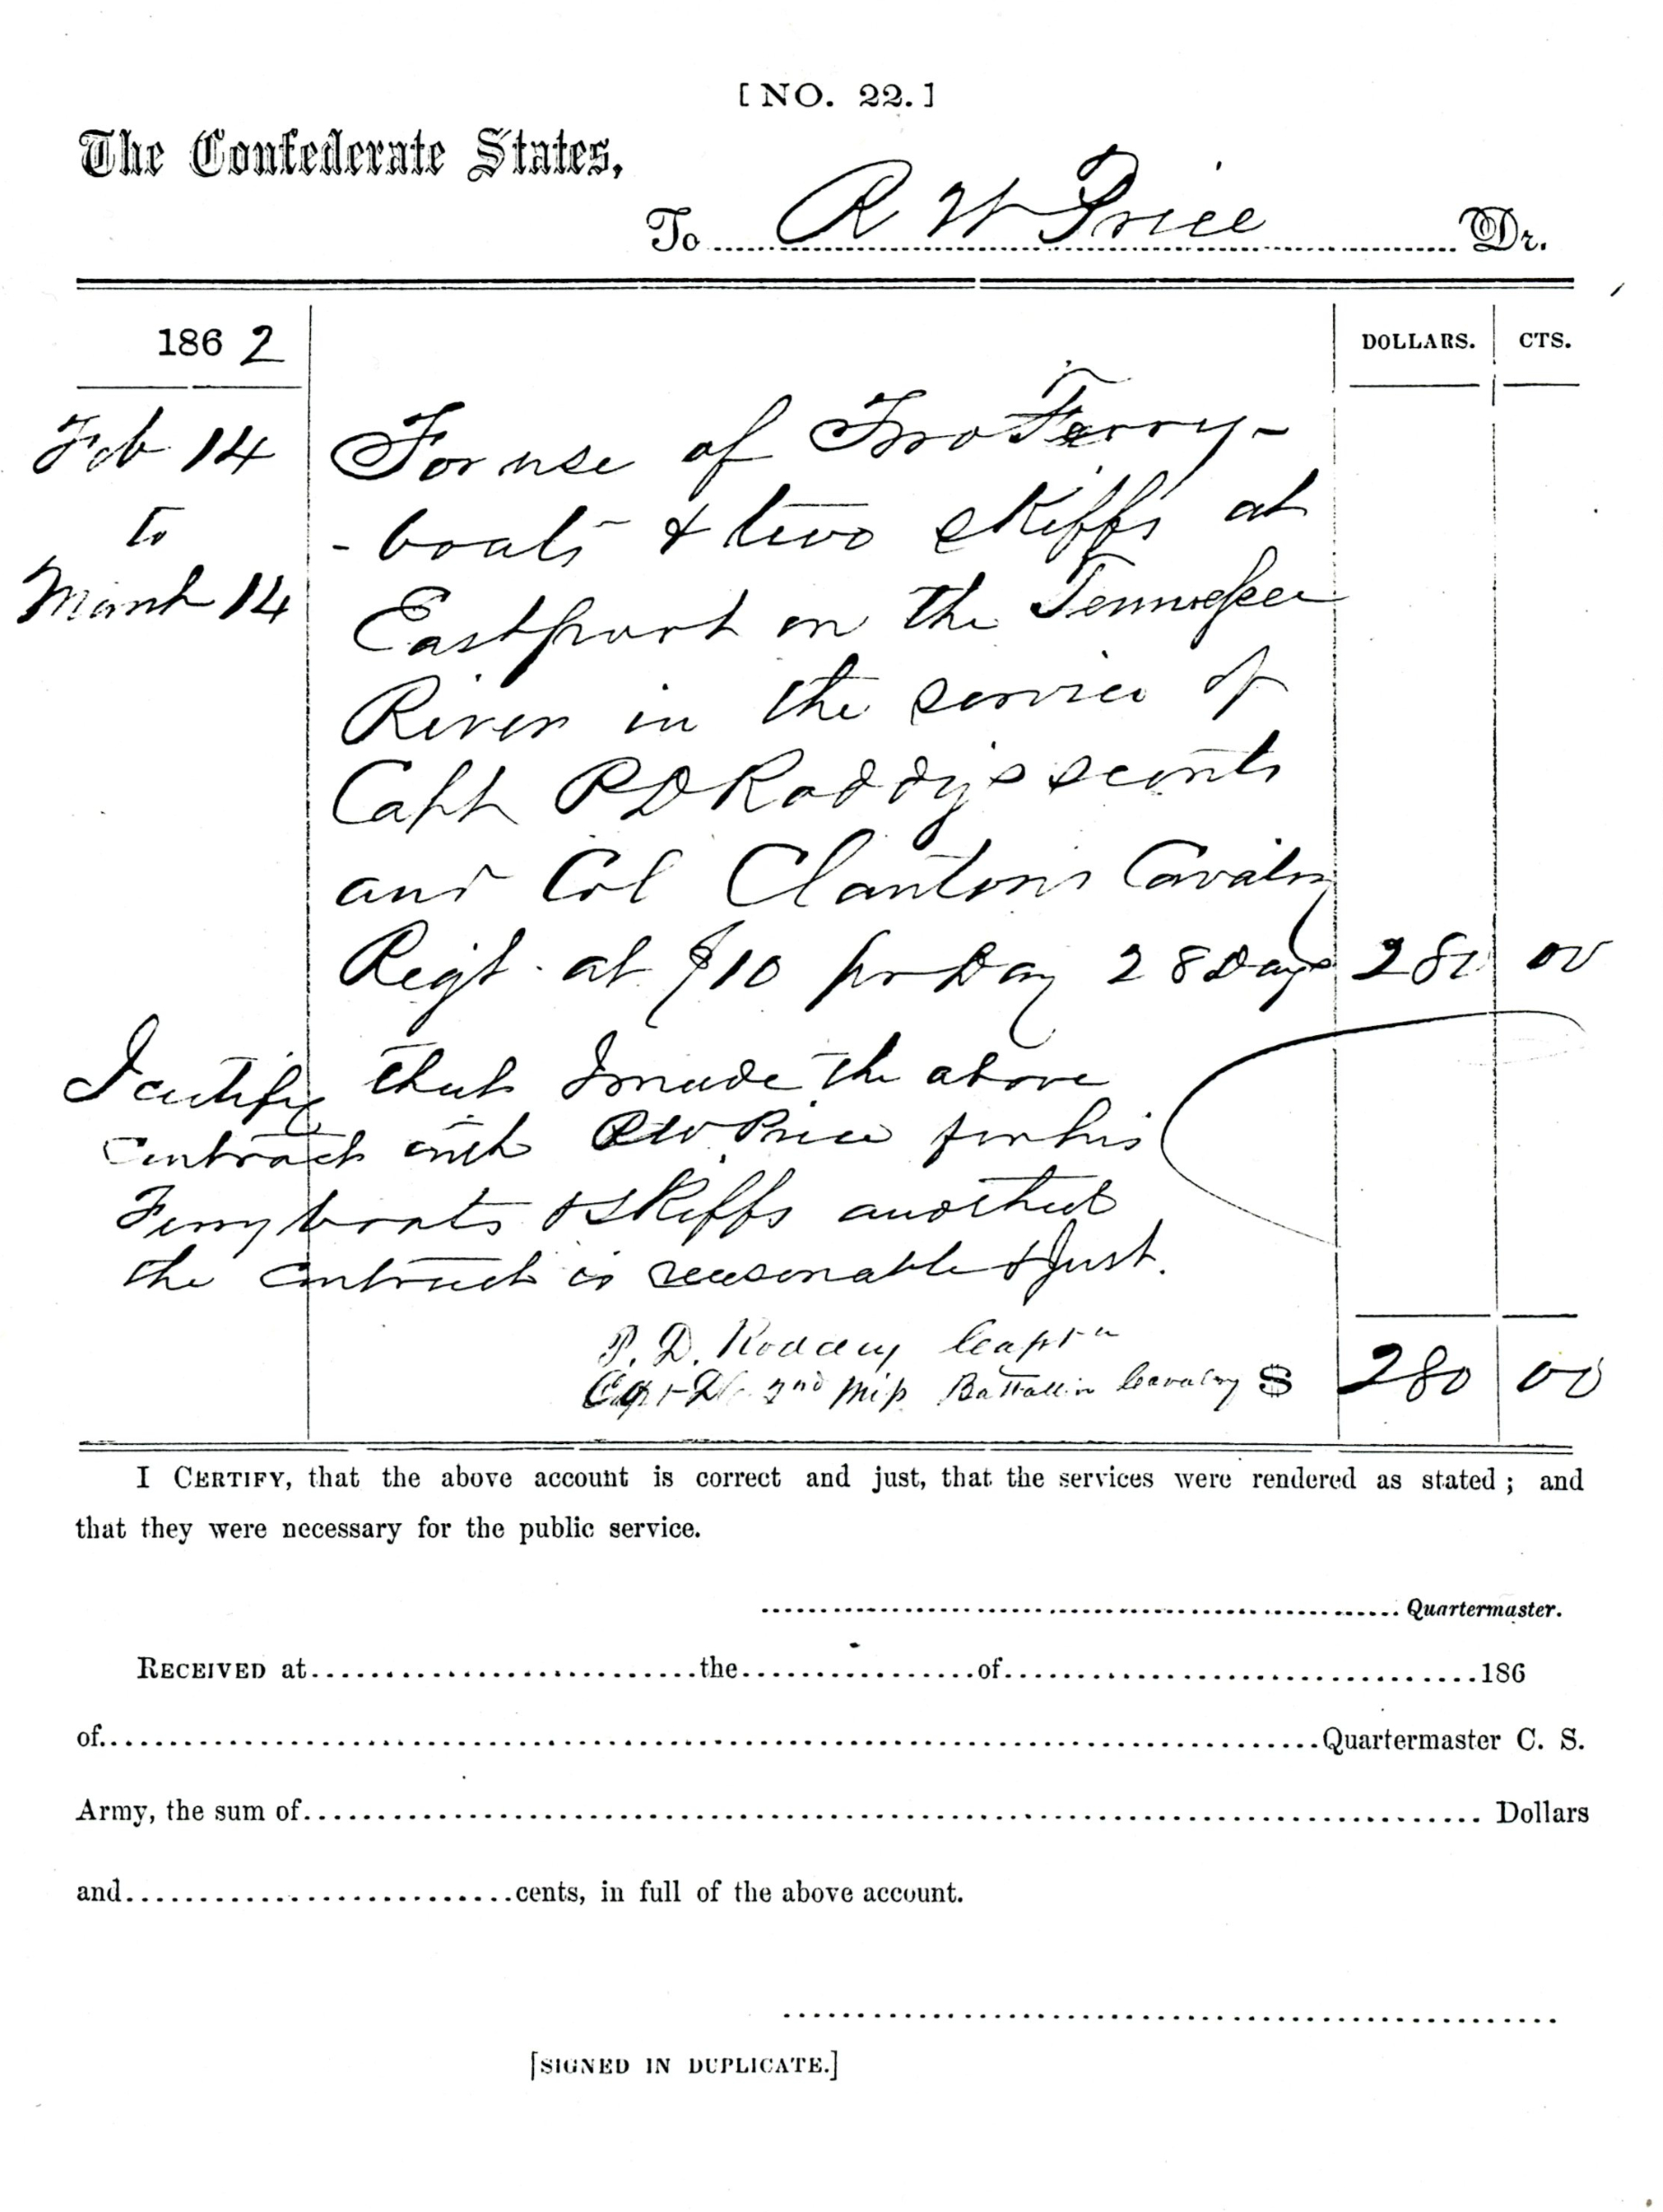 [NO. 22.]
The Confederate States,
To R W Price Dr.
1862 DOLLARS. CTS.
Feb 14 For use of Two Ferry-
to -boats & two skiffs at
March 14 Eastport on the Tennessee
River in the service of
Capt P D Roddy's scouts
and Col Clanton's Cavalry
Regt. at $10 pr Day 28 Days 280 00
I certify that I made the above
contract with R W Price for his
Ferry boats & skiffs and that
the contract is reasonable & Just.
P. D. Roddey Capt
2nd Miss Battallin Cavalry $ 280 00
I CERTIFY, that the above account is correct and just, that the services were rendered as stated; and
that they were necessary for the public service.
Quartermaster.
RECEIVED at the of 186
of Quartermaster C. S.
Army, the sum of Dollars
and cents, in full of the above account.
[SIGNED IN DUPLICATE.]